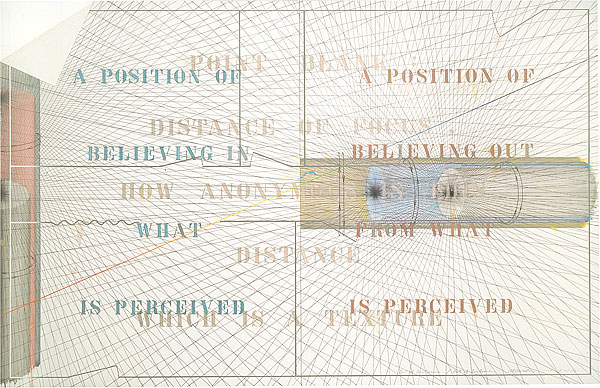 POINT BLANK
A POSITION OF
A POSITION OF
DISTANCE OF FOCUS
BELIEVING IN
BELIEVING OUT
HOW ANONYMOUS IS THIS
WHAT
FROM WHAT
DISTANCE
IS PERCEIVED
IS PERCEIVED
WHICH IS A TEXTURE